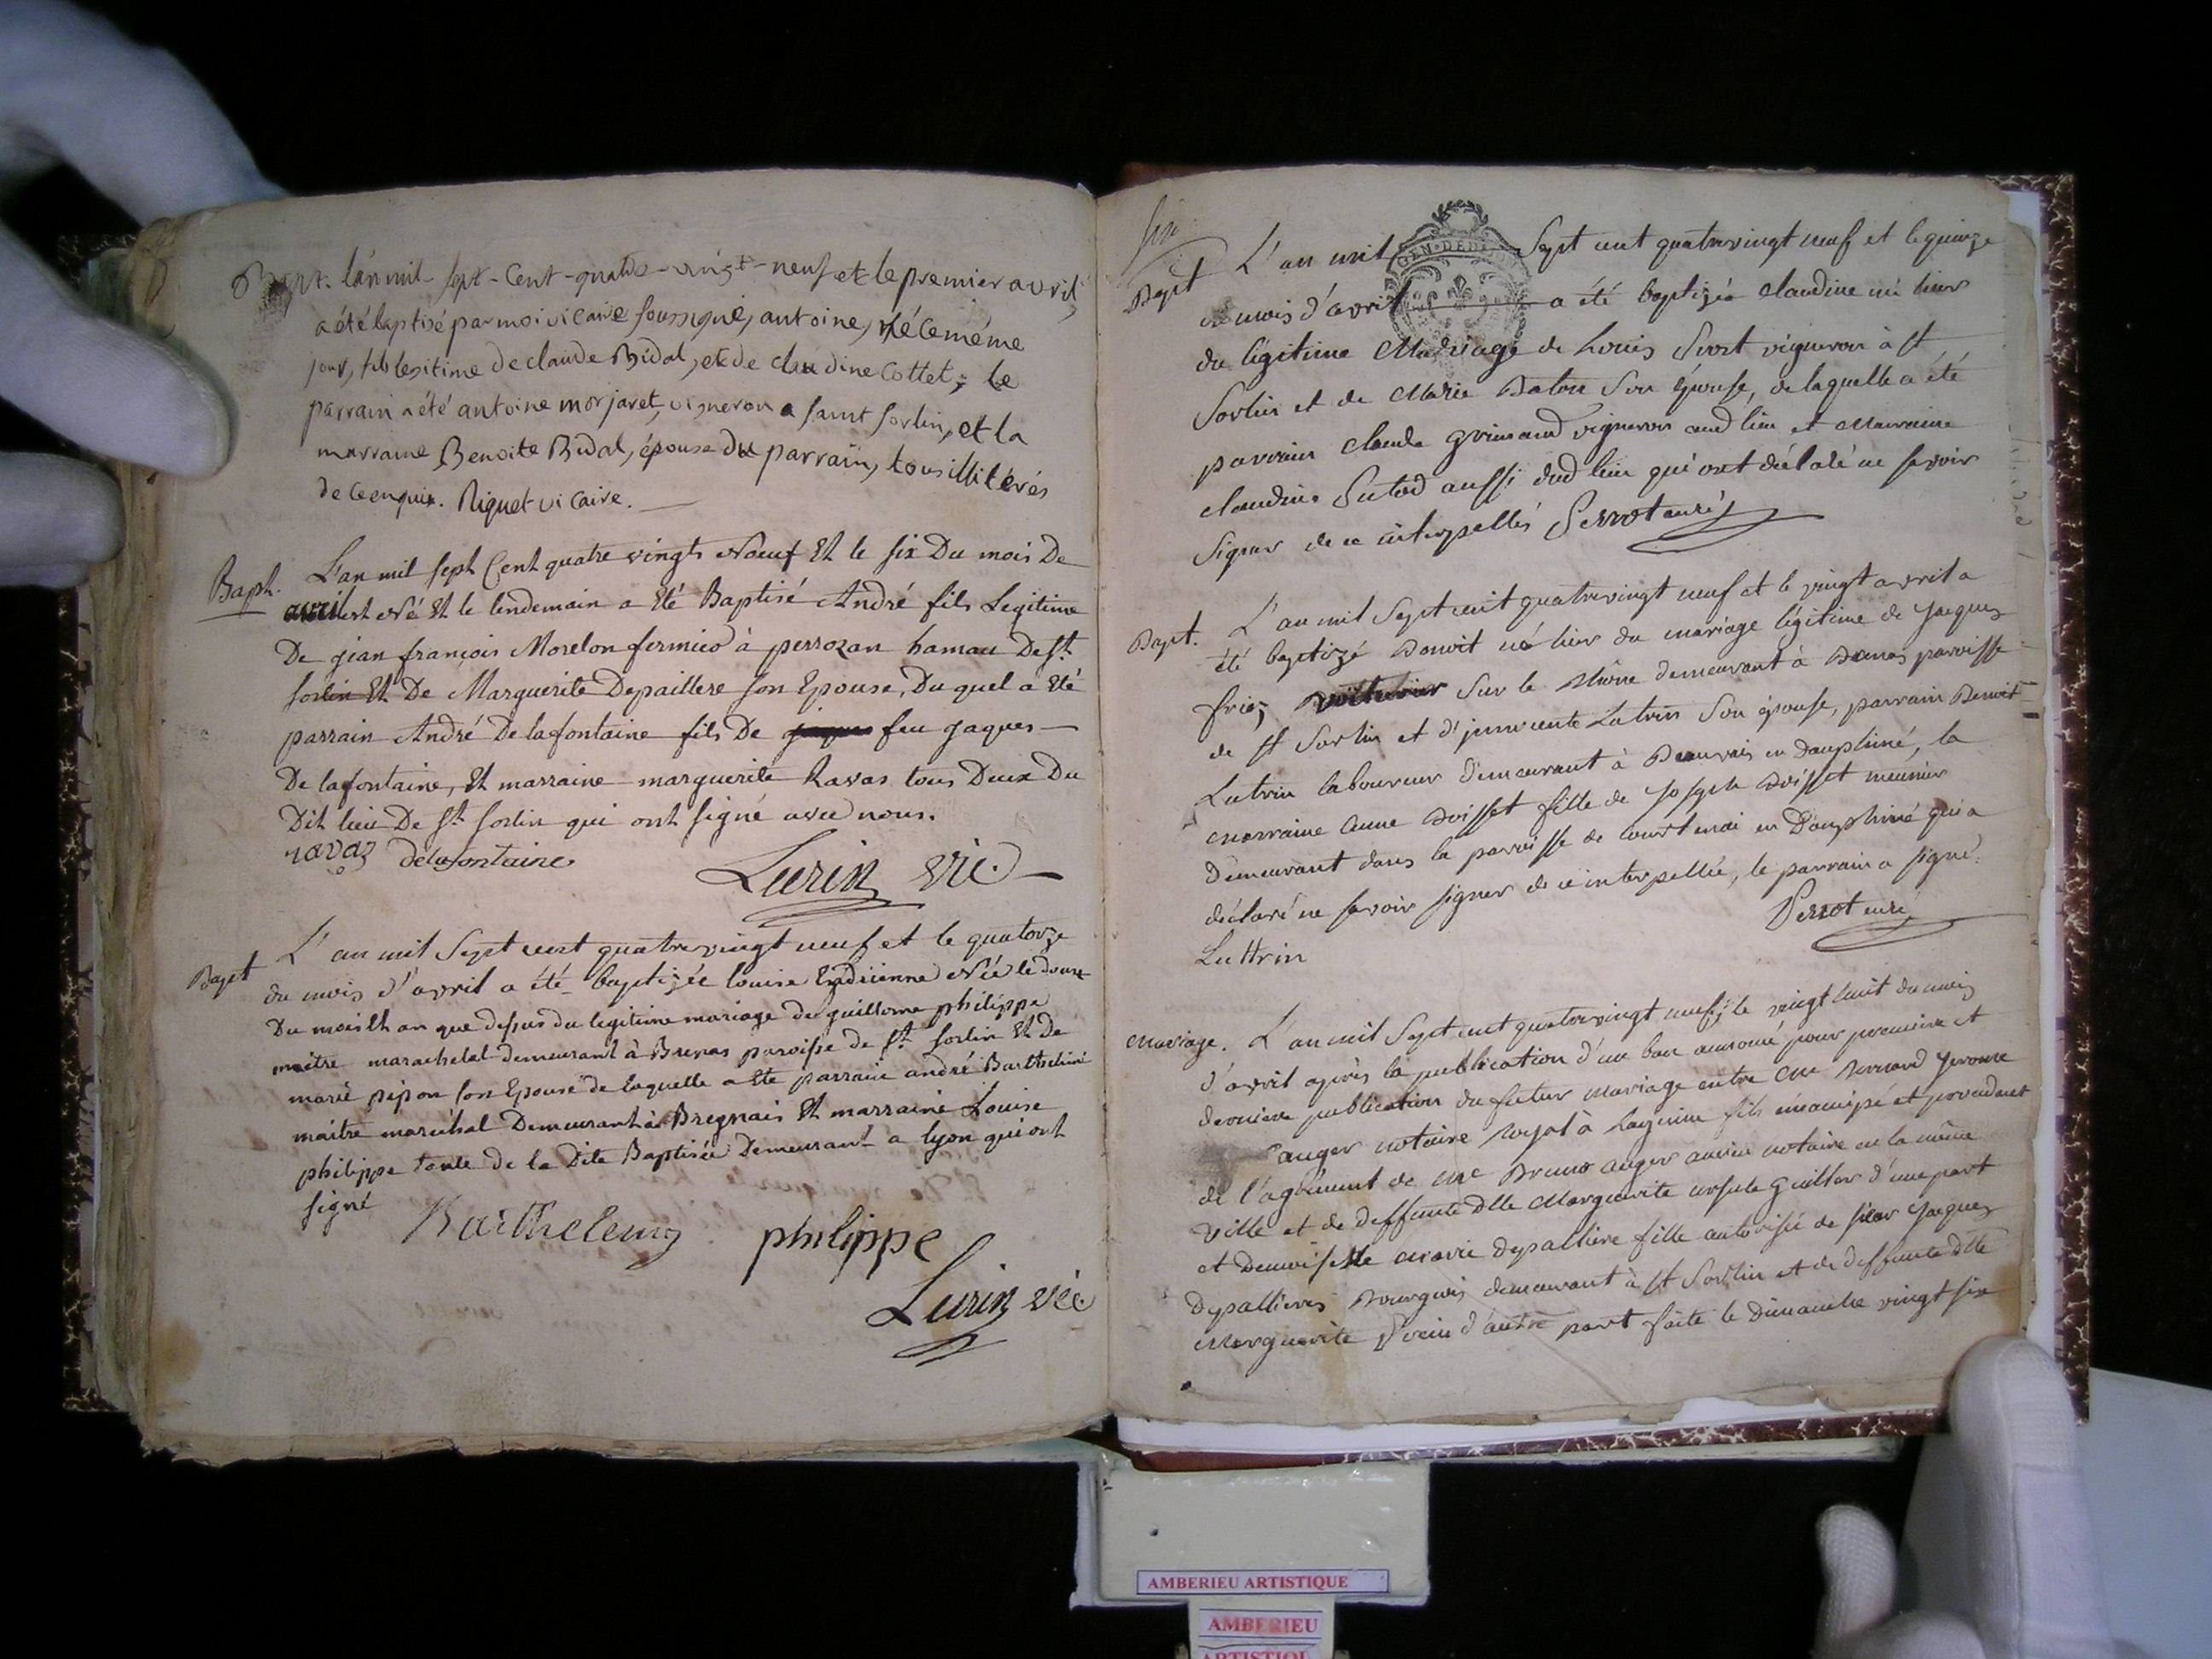 Bapt. l'an mil-sept-Cent-quatre-vingt-neuf et le premier avril
a été baptisé par moi vicaire soussigné, antoine, né le même
jour, fils legitime de claude Bidal, et de claudine Cottet; le
parrain a été antoine morjaret, vigneron a saint sorlin, et la
marraine Benoite Bidal, épouse du parrain, tous illiterés
de ce enquis. Riguet vicaire.
Bapt. L'an mil sept Cent quatre vingts Noeuf Et le six Du mois De
avril est Né Et le lendemain a Eté Baptisé André fils Legitime
De jean françois Morelon fermier à perrozan hamau De St
sorlin Et De Marguerite Depaillere son Epouse, Du quel a Eté
parrain André De lafontaine fils De jaques feu jaques
De lafontaine, Et marraine marguerite Ravas tous Deux Du
Dit lieu De St sorlin qui ont signé avec nous.
ravaz delafontaine
Lurin vic.
Bapt L'an mil Sept cent quatrevingt neuf et le quatorze
du mois d'avril a été baptizée louise Née le douze
Du mois Et an que dessus du legitime mariage de guillome philippe
maitre marachelal demeurant à Brenas paroisse de St sorlin Et De
marie pepon son Epouse de laquelle a Ete parrain andré Barthelimi
maitre maréchal Demeurant à Bregnais Et marraine Louise
philippe tante de la Dite Baptisée Demeurant a lyon qui ont
signé
Barthelemy philippe
Lurin vic.
six
GEN DE DI
Bapt L'an mil Sept cent quatrevingt neuf et le quinze
du mois d'avril a été baptizée claudine né hier
du légitime Mariage de Louis vigneron à St
Sorlin et de Marie Baton Son épouse, de laquelle a été
parrain claude grimaud vigneron aud lieu et Marraine
claudine aussi dud lieu qui ont déclaré ne savoir
Signer de ce interpellés Perrot curé
Bapt. L'an mil Sept cent quatrevingt neuf et le vingt avril a
été baptizé Benoit né hier du mariage légitime de jacques
voiturier Sur le Rhône demeurant à Brenas paroisse
de St Sorlin et d'jnnocente Lutrin Son épouse, parrain Benoit
Lutrin laboureur demeurant à Beauvais en Dauphiné, la
marraine anne Boisset fille de joseph Boisset meunier
demeurant dans la paroisse de courtenai en Dauphiné qui a
déclaré ne savoir signer de ce interpellée, le parrain a signé.
Perrot curé
Luttrin
Mariage. L'an mil Sept cent quatrevingt neuf, le vingt huit du mois
d'avril après la publication d'un ban annoncé pour premiere et
derniere publication du futur mariage entre Me Bernard
auger notaire royal à Lagnieu fils émancipé et procedant
de l'agrément de Me Bruno auger ancien notaire en la même
ville et de deffunte Dlle Marguerite ursule d'une part
et Demoiselle marie Depalliere fille autorisée de sieur jacques
Depallieres Bourgeois demeurant à St Sorlin et de deffunte Dlle
Marguerite d'autre part faite le Dimanche vingt six
AMBERIEU ARTISTIQUE
AMBERIEU
ARTISTIQUE